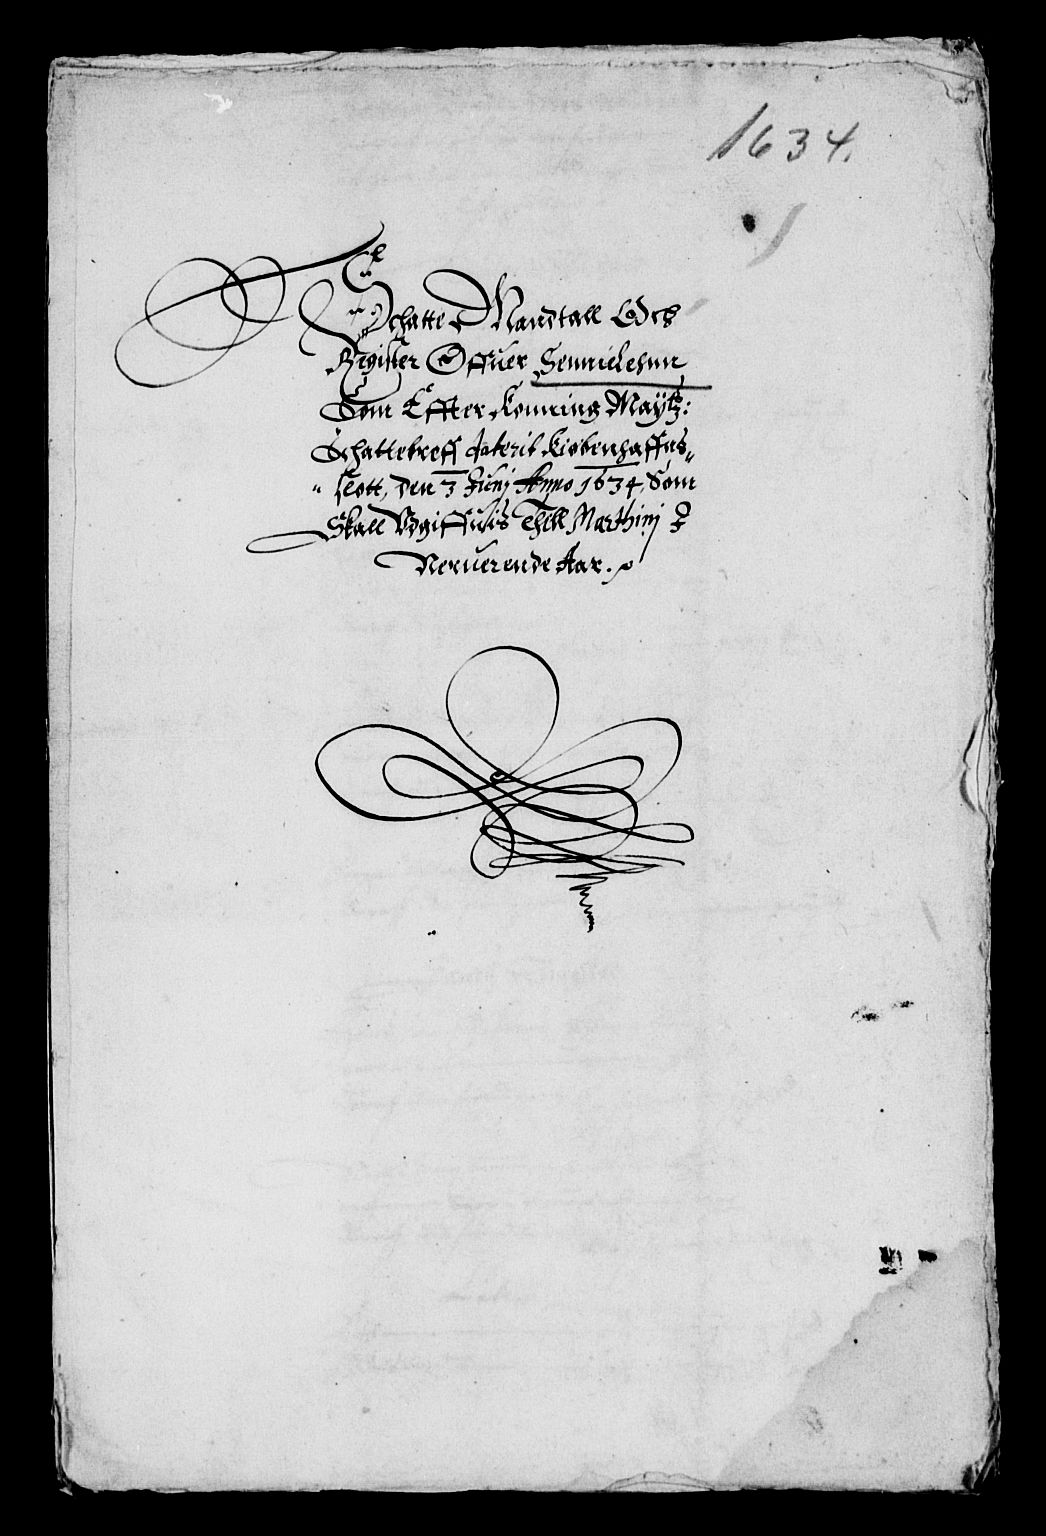 1634.
Schatte Mandtall Och
Register Offuer Semmelehnn
Som Effter Konning Mayſtz:
Schattebreff daterit Kiøbenhaffns
slott, den 3 Junj Anno 1634, Som
Skall Vdgiffuis Thill Marthinj
Neruerende Aar.